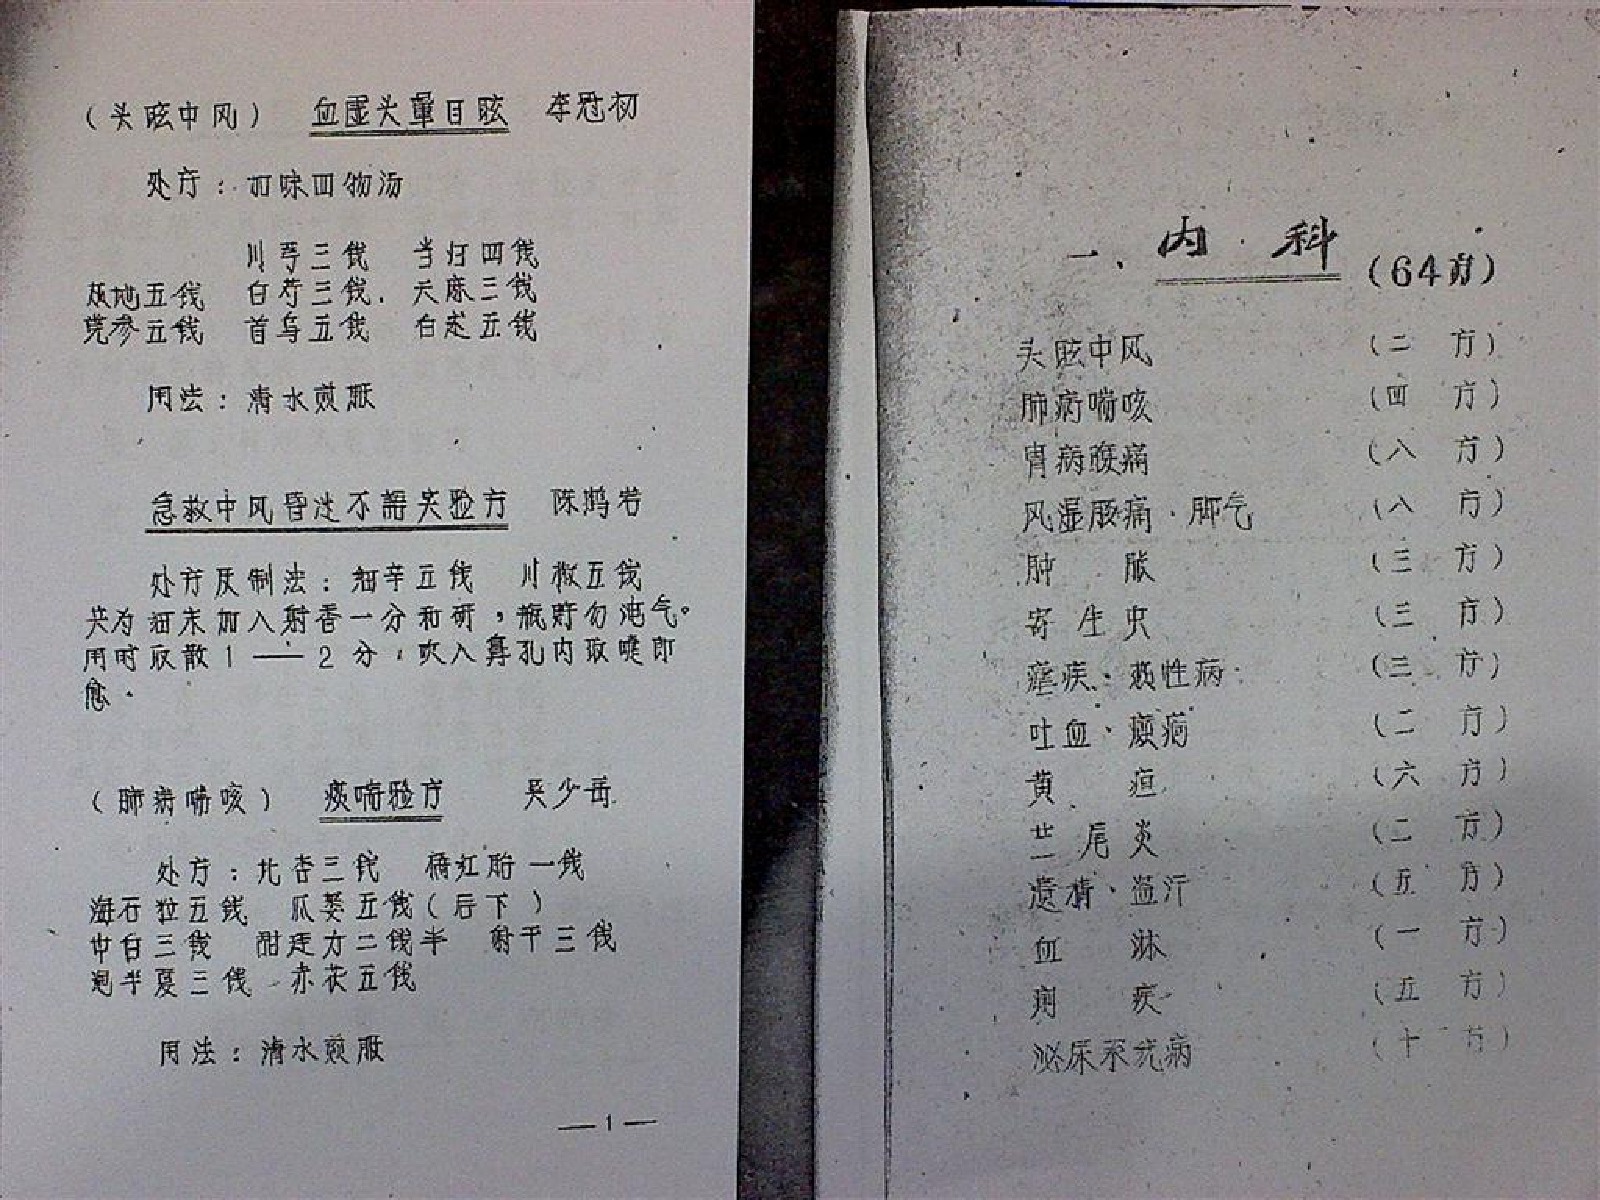 (头眩中风) 血虚头晕目眩 李冠初
处方:加味四物汤
川芎三钱 当归四钱
熟地五钱 白芍三钱. 天麻三钱
党参五钱 首乌五钱 白芷五钱
用法:清水煎服
急救中风昏迷不语实验方 陈鹤岩
处方及制法:细辛五钱 川椒五钱
共为细末加入射香一分和研,瓶贮勿洩气。
用时取散1——2分,吹入鼻孔内取嚏即
愈.
(肺病喘咳) 痰喘验方 吴少岳
处方:北杏三钱 橘红胎一钱
海石粒五钱 瓜蒌五钱(后下)
中白三钱 甜葶力二钱半 射干三钱
廽半夏三钱 赤茯五钱
用法:清水煎服
—1—
一、内科(64方)
头眩中风 (二方)
肺病喘咳 (四方)
胃病腹痛 (八方)
风湿腰痛·脚气 (八方)
肿胀 (三方)
寄生虫 (三方)
疟疾·热性病 (三方)
吐血·癫痫 (二方)
黄疸 (六方)
兰尾炎 (二方)
遗精·盗汗 (五方)
血淋 (一方)
痢疾 (五方)
泌尿系统病 (十一方)